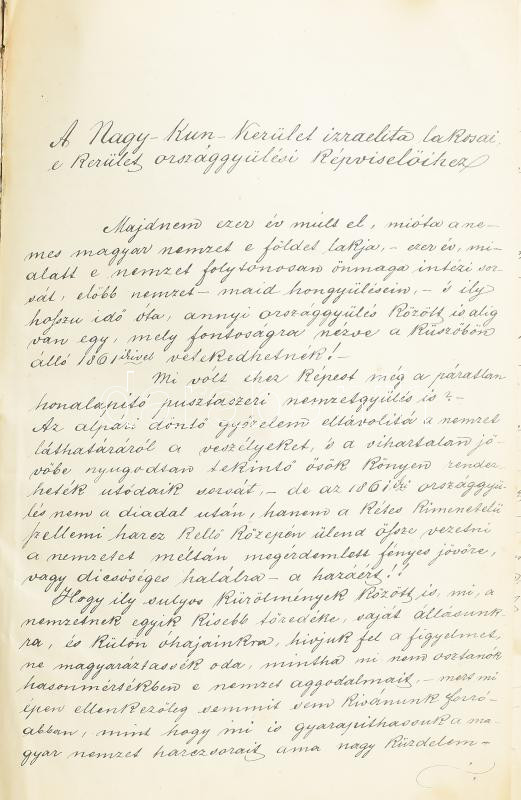 A Nagy-Kun-Kerület izraelita lakosai,
e Kerület országgyülési Képviselöihez
Majdnem ezer év múlt el, mióta a ne-
mes magyar nemzet e földet lakja, - ezer év, mi-
alatt e nemzet folytonosan önmaga intézi sor-
sát, elöbb nemzet - maid hongyülésein, - 's ily
hosszu idö ota, annyi országgyülés Között is alig
van egy, mely fontoságra nézve a Küszöbön
álló 1861dikivel vetekedhetnék! -
Mi vólt ehez Képest még a páratlan
honalapitó pusztaszeri nemzetgyulés is? -
Az alpári döntö gyözelem eltávolitá a nemzet
láthatáráról a veszélyeket, 's a vihartalan jö-
vöbe nyugodtan tekintö ösök Könyen rendez
heték utódaik sorsát, - de az 1861diki országgyü-
lés nem a diadal után, hanem a Kétes Kimenetelü
szellemi harcz Kellö Közepén ülend össze vezetni
a nemzetet méltán megérdemlett fényes jövöre,
vagy dicsöséges halálra - a hazáért!!
Hogy ily sulyos Körülmények Között is, mi, a
nemzetnek egyik Kisebb töredéke, saját állásunk-
ra, és Külön óhajainkra, hivjuk fel a figyelmet,
ne magyaráztassék oda, mintha mi nem osztanók
hasonmérsékben e nemzet aggodalmait, - mert mi
épen ellenkezöleg semmit sem Kivánunk forró-
abban, mint hogy mi is gyarapithassuk a ma-
gyar nemzet harczsorait ama nagy Küzdelem-